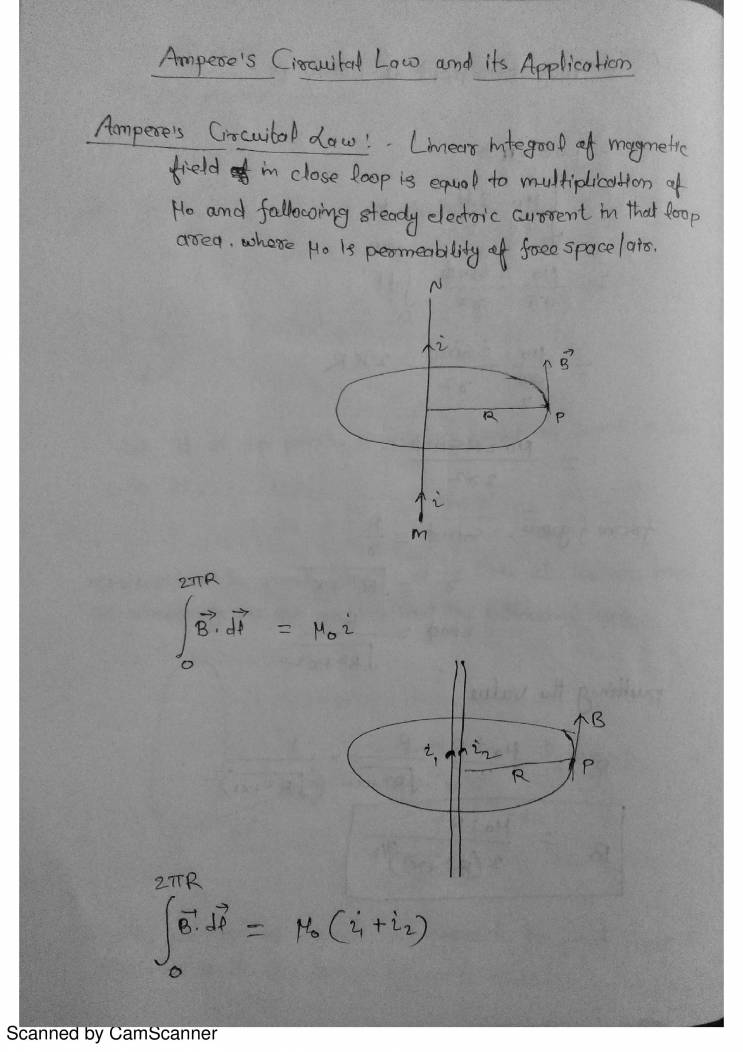 Ampere's Circuital Law and its Application
Ampere's Circuital Law :- Linear Integral of magnetic
field in close loop is equal to multiplication of
μ₀ and fallowing steady electric current in that loop
area. where μ₀ is permeability of free space/air.
N
i
B⃗
R
P
i
M
2πR
∫ B⃗. dl⃗ = μ₀ i
0
i₁ i₂
B
R
P
2πR
∫ B⃗. dl⃗ = μ₀ (i₁ + i₂)
0
Scanned by CamScanner